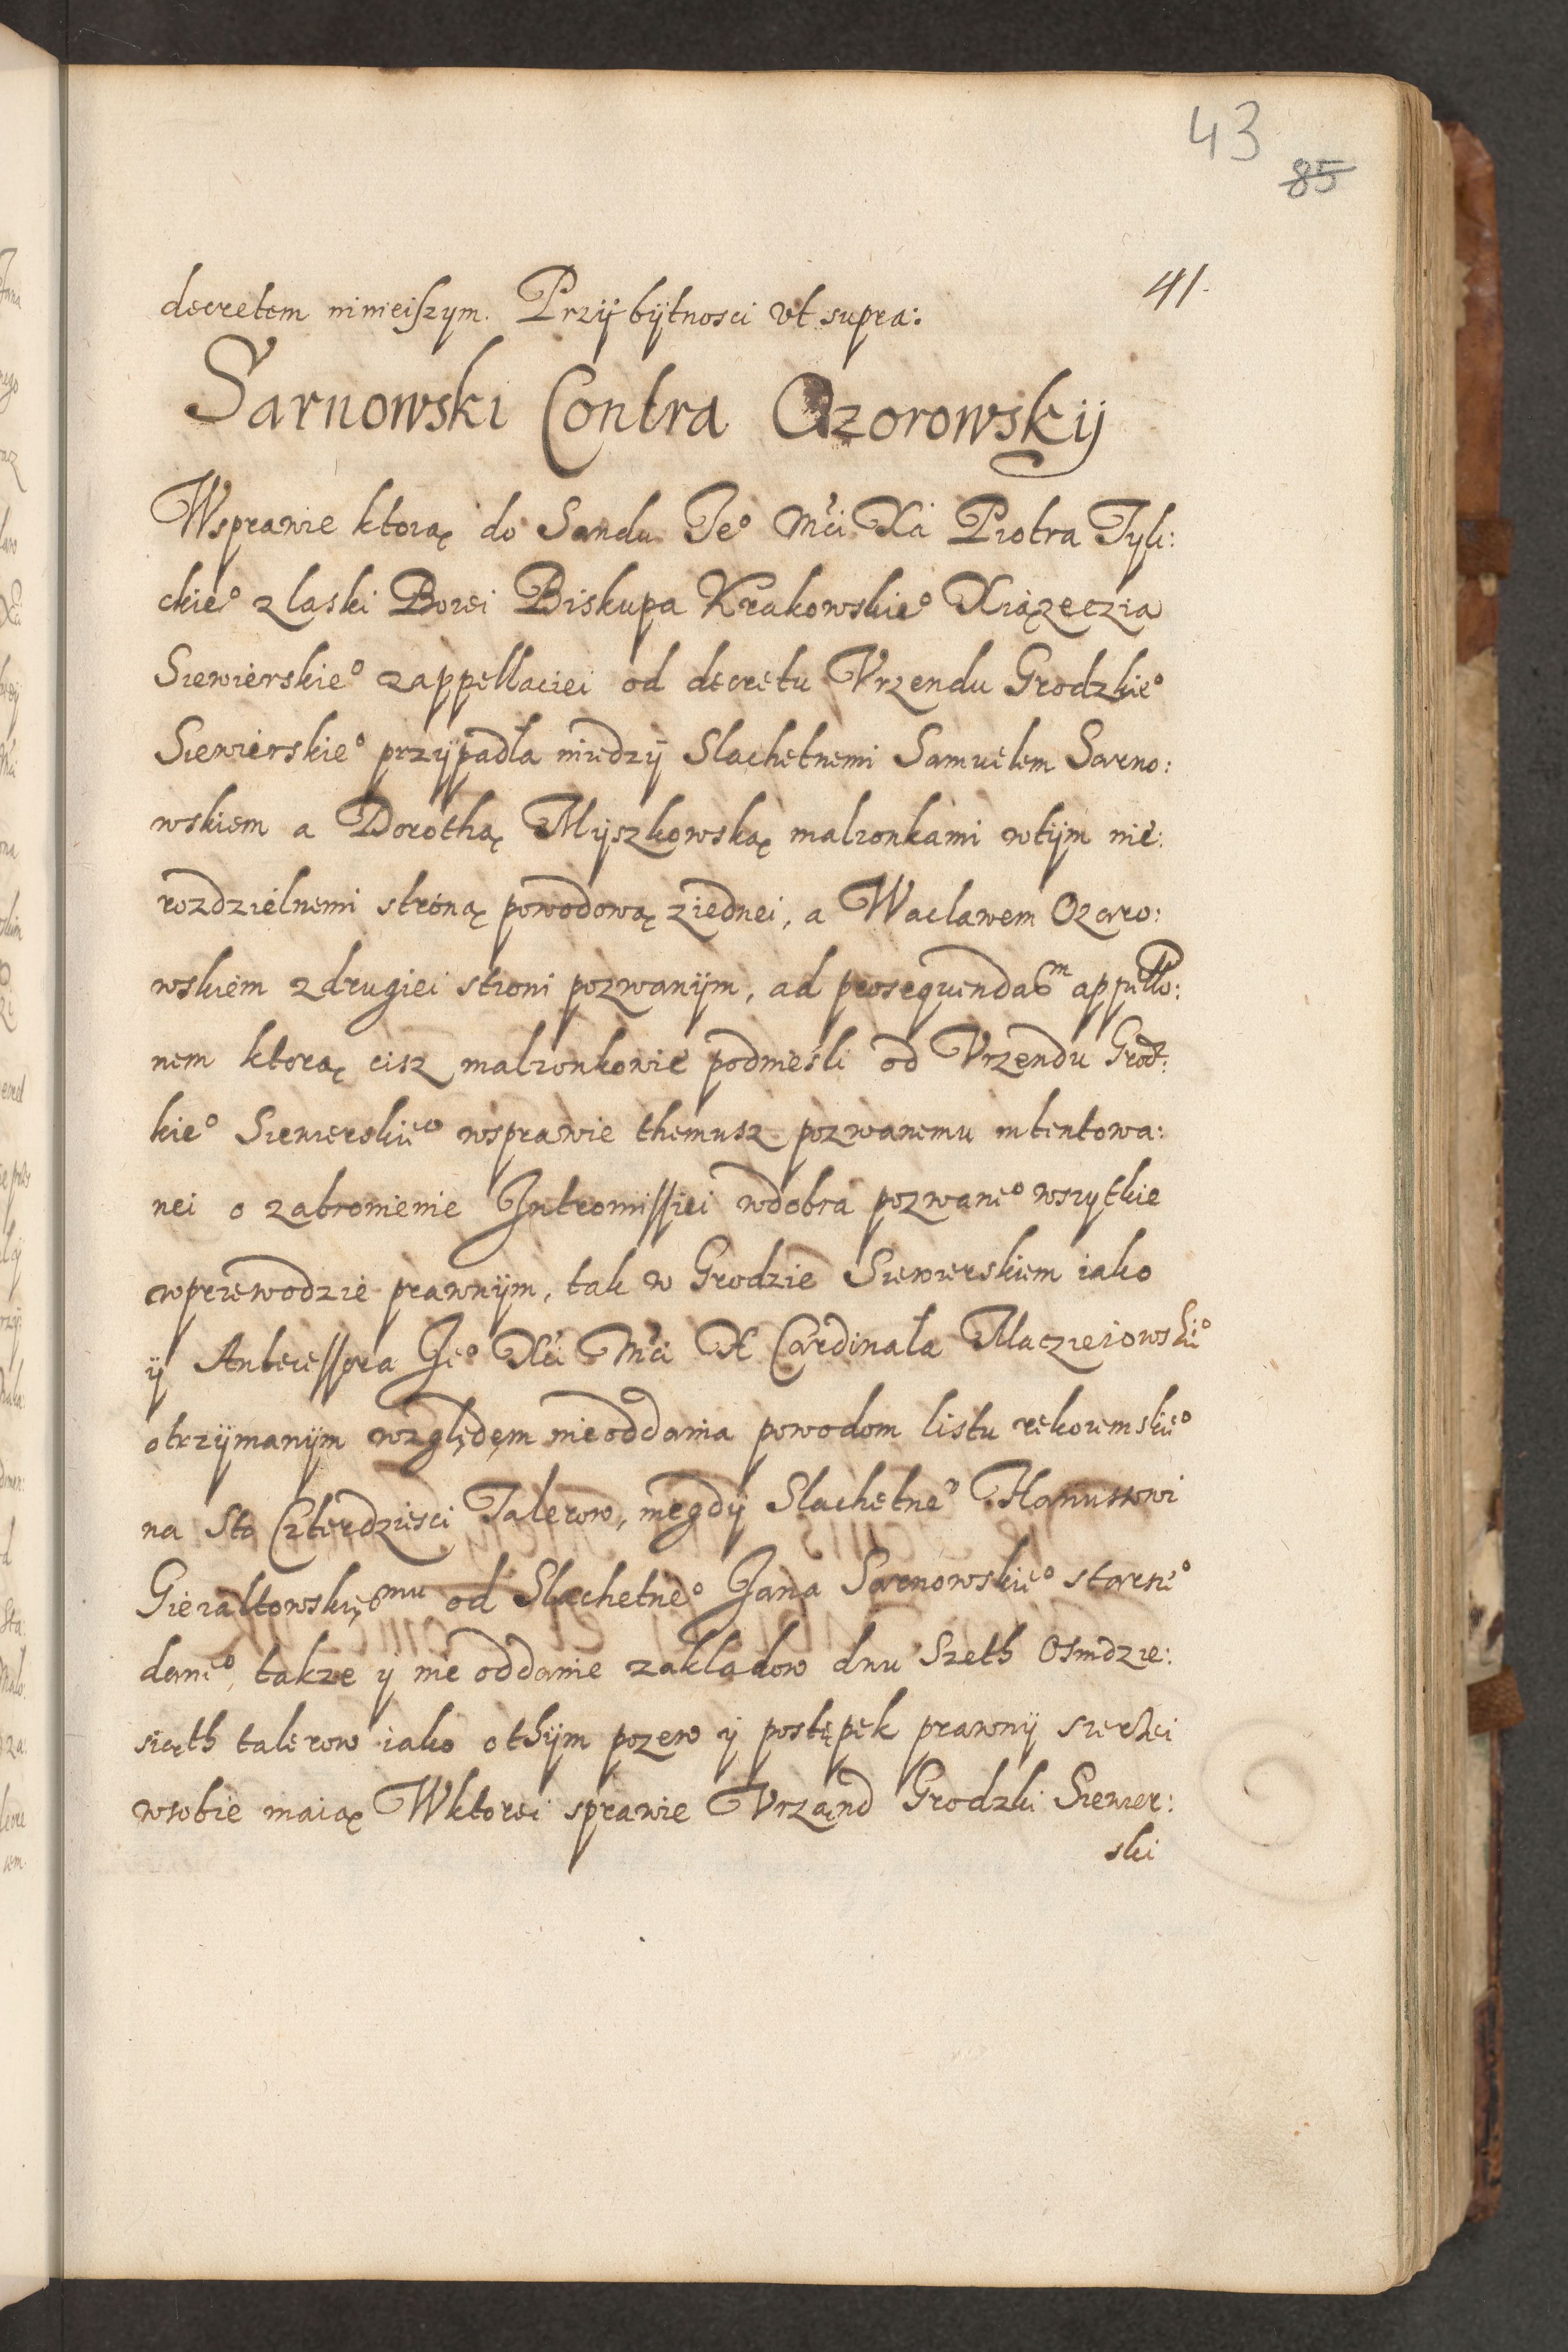 43
85
41.
decretem ninieiszym. Przÿ bÿtnosci vt supra:
Sarnowski Contra Ozorowskÿ
Wsprawie ktorą do Sandu Je° Mci Xa Piotra Tyli:
ckie° z laski Bozei Biskupa Krakowskie° Xiązeczia
Siewierskie° zappellaciei od decretu Vrzendu Grodzkie°
Siewierskie° przÿpadla miedzÿ Slachetnemi Samuelem Sarno:
wskiem a Dorothą Mÿszkowską malzonkami wtÿm nie:
rozdzielnemi stroną powodową ziednei, a Waclawem Ozaro:
wskiem zdrugiei stroni pozwanÿm, ad prosequendam appello:
nem ktorą cisz malzonkowie podniesli od Vrzendu Grod:
kie° Siewierskie° wsprawie themusz pozwanemu intentowa:
nei o zabronienie Intromissiei wdobra pozwane° wszytkie
wprzewodzie prawnÿm, tak w Grodzie Siewierskiem iako
ÿ Antecessora Je° Xci Mci X Cardinala Macziejowskie°
otrzÿmanÿm względem nieoddania powodom listu rekoiemskie°
na Sto Czterdziesci Talerow, niegdÿ Slachetne° Hanussowi
Gieraltowskiemu od Slachetne° Jana Sarnowskie° starse°
dane°, takze ÿ nie oddanie zakladow dwu Szeth Osmdzie:
siąth talerow iako othÿm pozew ÿ postępek prawnÿ szerzei
wsobie maią Wktorei sprawie Vrząnd Grodzki Siewier:
ski